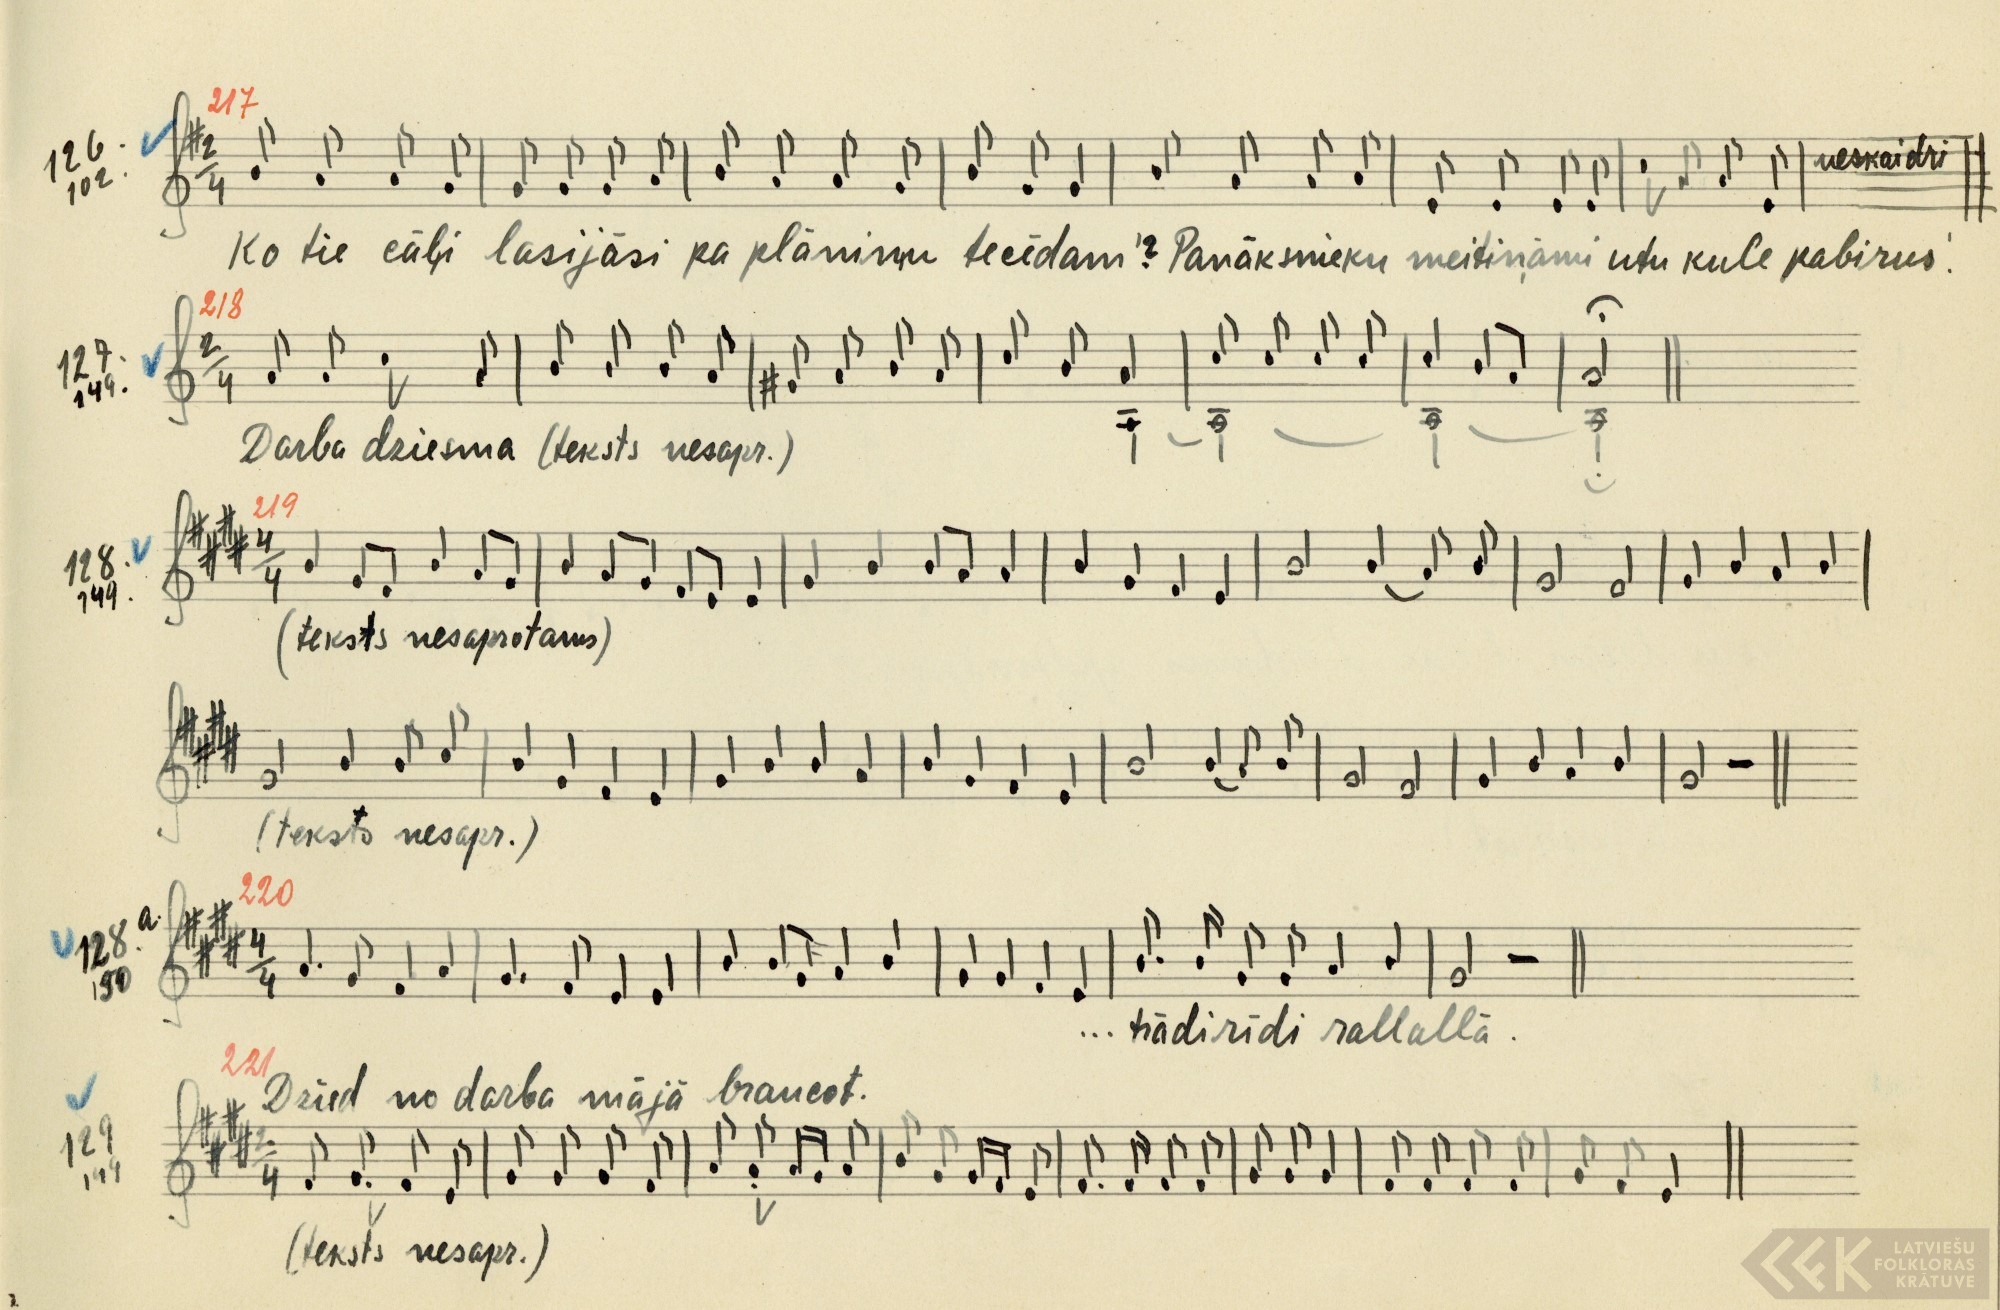 217
126.
102.
2/4
neskaidri
Ko tie cāļi lasijāsi pa plāniņu tecēdami? Panāksnieku meitiņāmi utu kule pabirus!
218
127.
149.
2/4
Darba dziesma (teksts nesapr.)
219
128.
149.
4/4
(teksts nesaprotams)
(teksts nesapr.)
220
128.a.
150
4/4
... trādirīdi rallallā.
221
Dzied no darba mājā braucot.
129
2/4
(teksts nesapr.)
LATVIEŠU
FOLKLORAS
KRĀTUVE